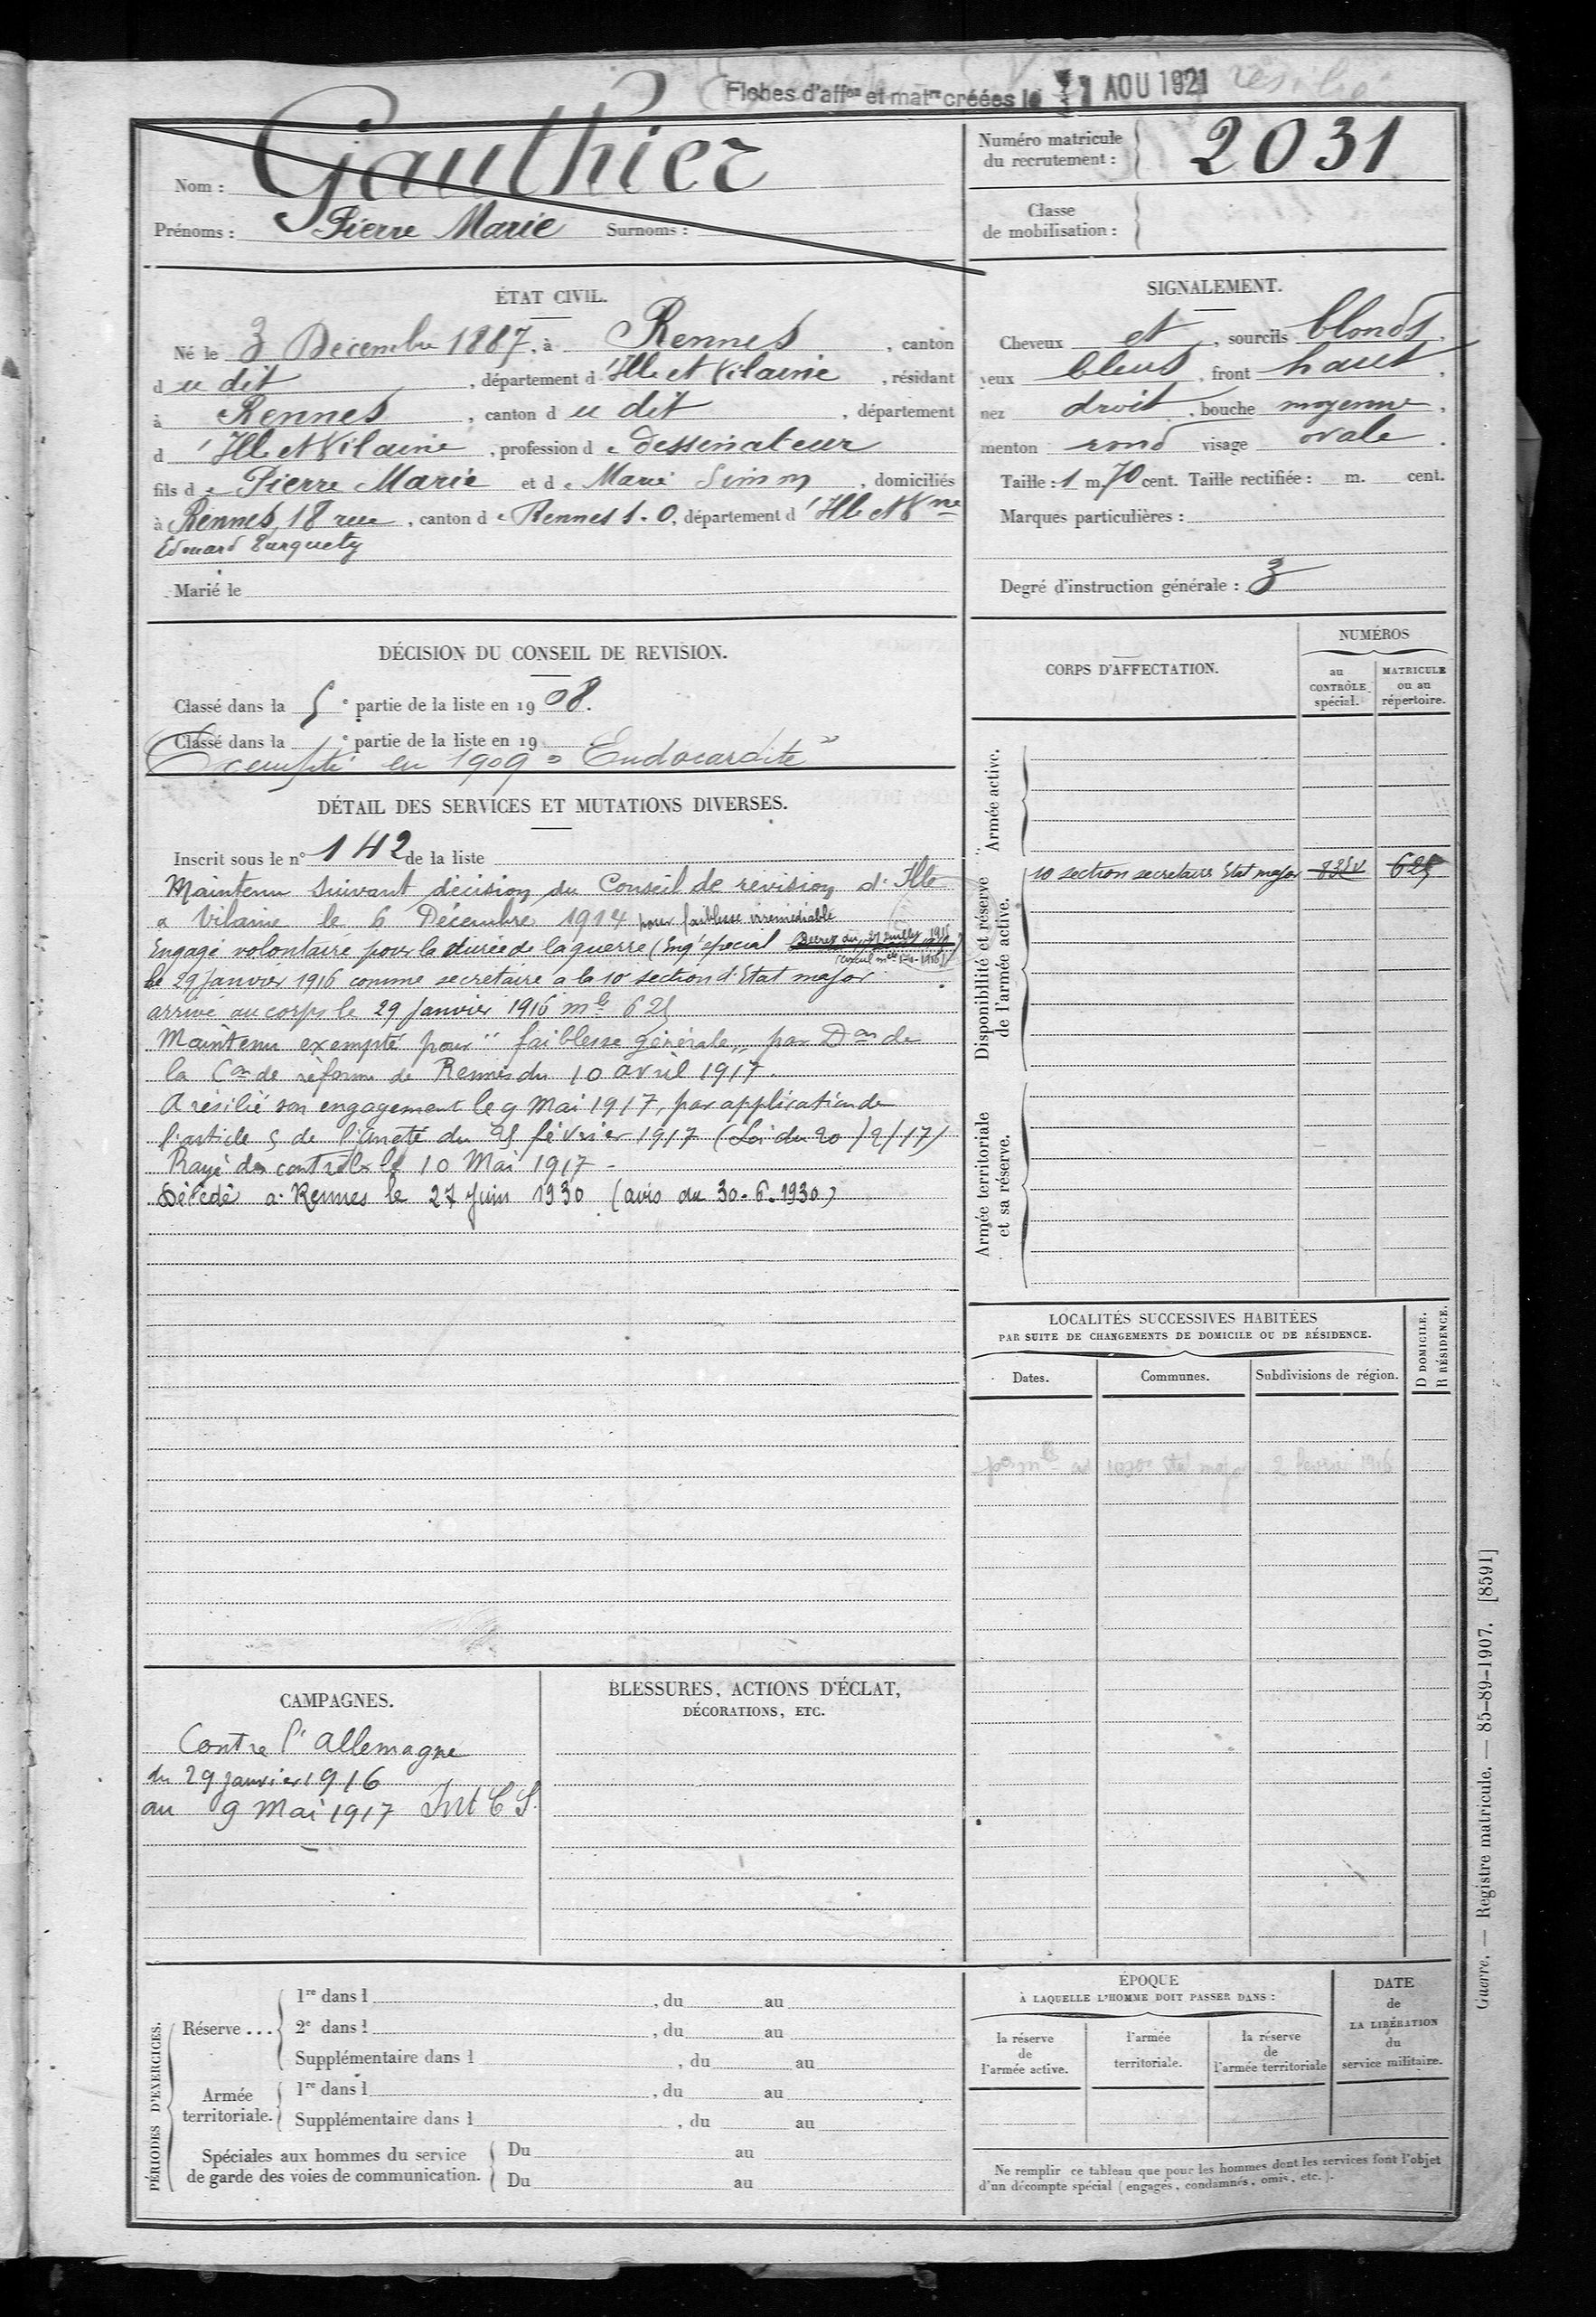 Fiches d'affon et matre créées le 1 AOU 1921
résilié
Nom : Gauthier
Prénoms : Pierre Marie Surnoms :
Numéro matricule
du recrutement : 2031
Classe
de mobilisation :
ÉTAT CIVIL.
Né le 3 Décembre 1887, à Rennes, canton
du dit, département d'Ille et Vilaine, résidant
à Rennes, canton du dit, département
d'Ille et Vilaine, profession de dessinateur
fils de Pierre Marie et de Marie Simon, domiciliés
à Rennes, 18 rue, canton de Rennes S.O, département d'Ille et Vne
Edouard Turquety
Marié le
SIGNALEMENT.
Cheveux et, sourcils blonds,
yeux bleus, front haut,
nez droit, bouche moyenne,
menton rond visage ovale.
Taille : 1 m. 70 cent. Taille rectifiée : m. cent.
Marques particulières :
Degré d'instruction générale : 3
DÉCISION DU CONSEIL DE REVISION.
Classé dans la 5e partie de la liste en 1908.
Classé dans la e partie de la liste en 19
Exempté en 1909 "Endocardite"
DÉTAIL DES SERVICES ET MUTATIONS DIVERSES.
Inscrit sous le n° 142 de la liste
Maintenu suivant décision du Conseil de revision d'Ille
& Vilaine le 6 Décembre 1914 pour faiblesse irrémédiable
Engagé volontaire pour la durée de la guerre (Engt spécial Décret du 27 Juillet 1915
le 29 Janvier 1916 comme secretaire a la 10e section d'Etat major
arrivé au corps le 29 Janvier 1916 mle 625
Maintenu exempté pour "faiblesse générale" par Don de
la Con de réforme de Rennes du 10 avril 1917.
A résilié son engagement le 9 Mai 1917, par application de
l'article 5 de l'arreté du 25 février 1917 (Loi du 20/2/17)
Rayé des contrôles le 10 Mai 1917 -
Décédé à Rennes le 27 Juin 1930 (avis du 30.6.1930)
CORPS D'AFFECTATION.
NUMÉROS
au
CONTRÔLE
spécial.
MATRICULE
ou au
répertoire.
Armée active.
Disponibilité et réserve
de l'armée active.
10 section secretaires Etat major 625
Armée territoriale
et sa réserve.
LOCALITÉS SUCCESSIVES HABITÉES
PAR SUITE DE CHANGEMENTS DE DOMICILE OU DE RÉSIDENCE.
Dates.
Communes.
Subdivisions de région.
D DOMICILE.
R RÉSIDENCE.
Etat major 2 février 1916
CAMPAGNES.
Contre l'Allemagne
du 29 Janvier 1916
au 9 Mai 1917 Int C S.
BLESSURES, ACTIONS D'ÉCLAT,
DÉCORATIONS, ETC.
PÉRIODES D'EXERCICES.
Réserve ...
1re dans l , du au
2e dans l , du au
Supplémentaire dans l , du au
Armée
territoriale.
1re dans l , du au
Supplémentaire dans l , du au
Spéciales aux hommes du service
de garde des voies de communication.
Du au
Du au
ÉPOQUE
À LAQUELLE L'HOMME DOIT PASSER DANS :
la réserve
de
l'armée active.
l'armée
territoriale.
la réserve
de
l'armée territoriale
DATE
de
LA LIBÉRATION
du
service militaire.
Ne remplir ce tableau que pour les hommes dont les services font l'objet
d'un décompte spécial (engagés, condamnés, omis, etc.).
Guerre. — Registre matricule. — 85-89-1907. [8591]